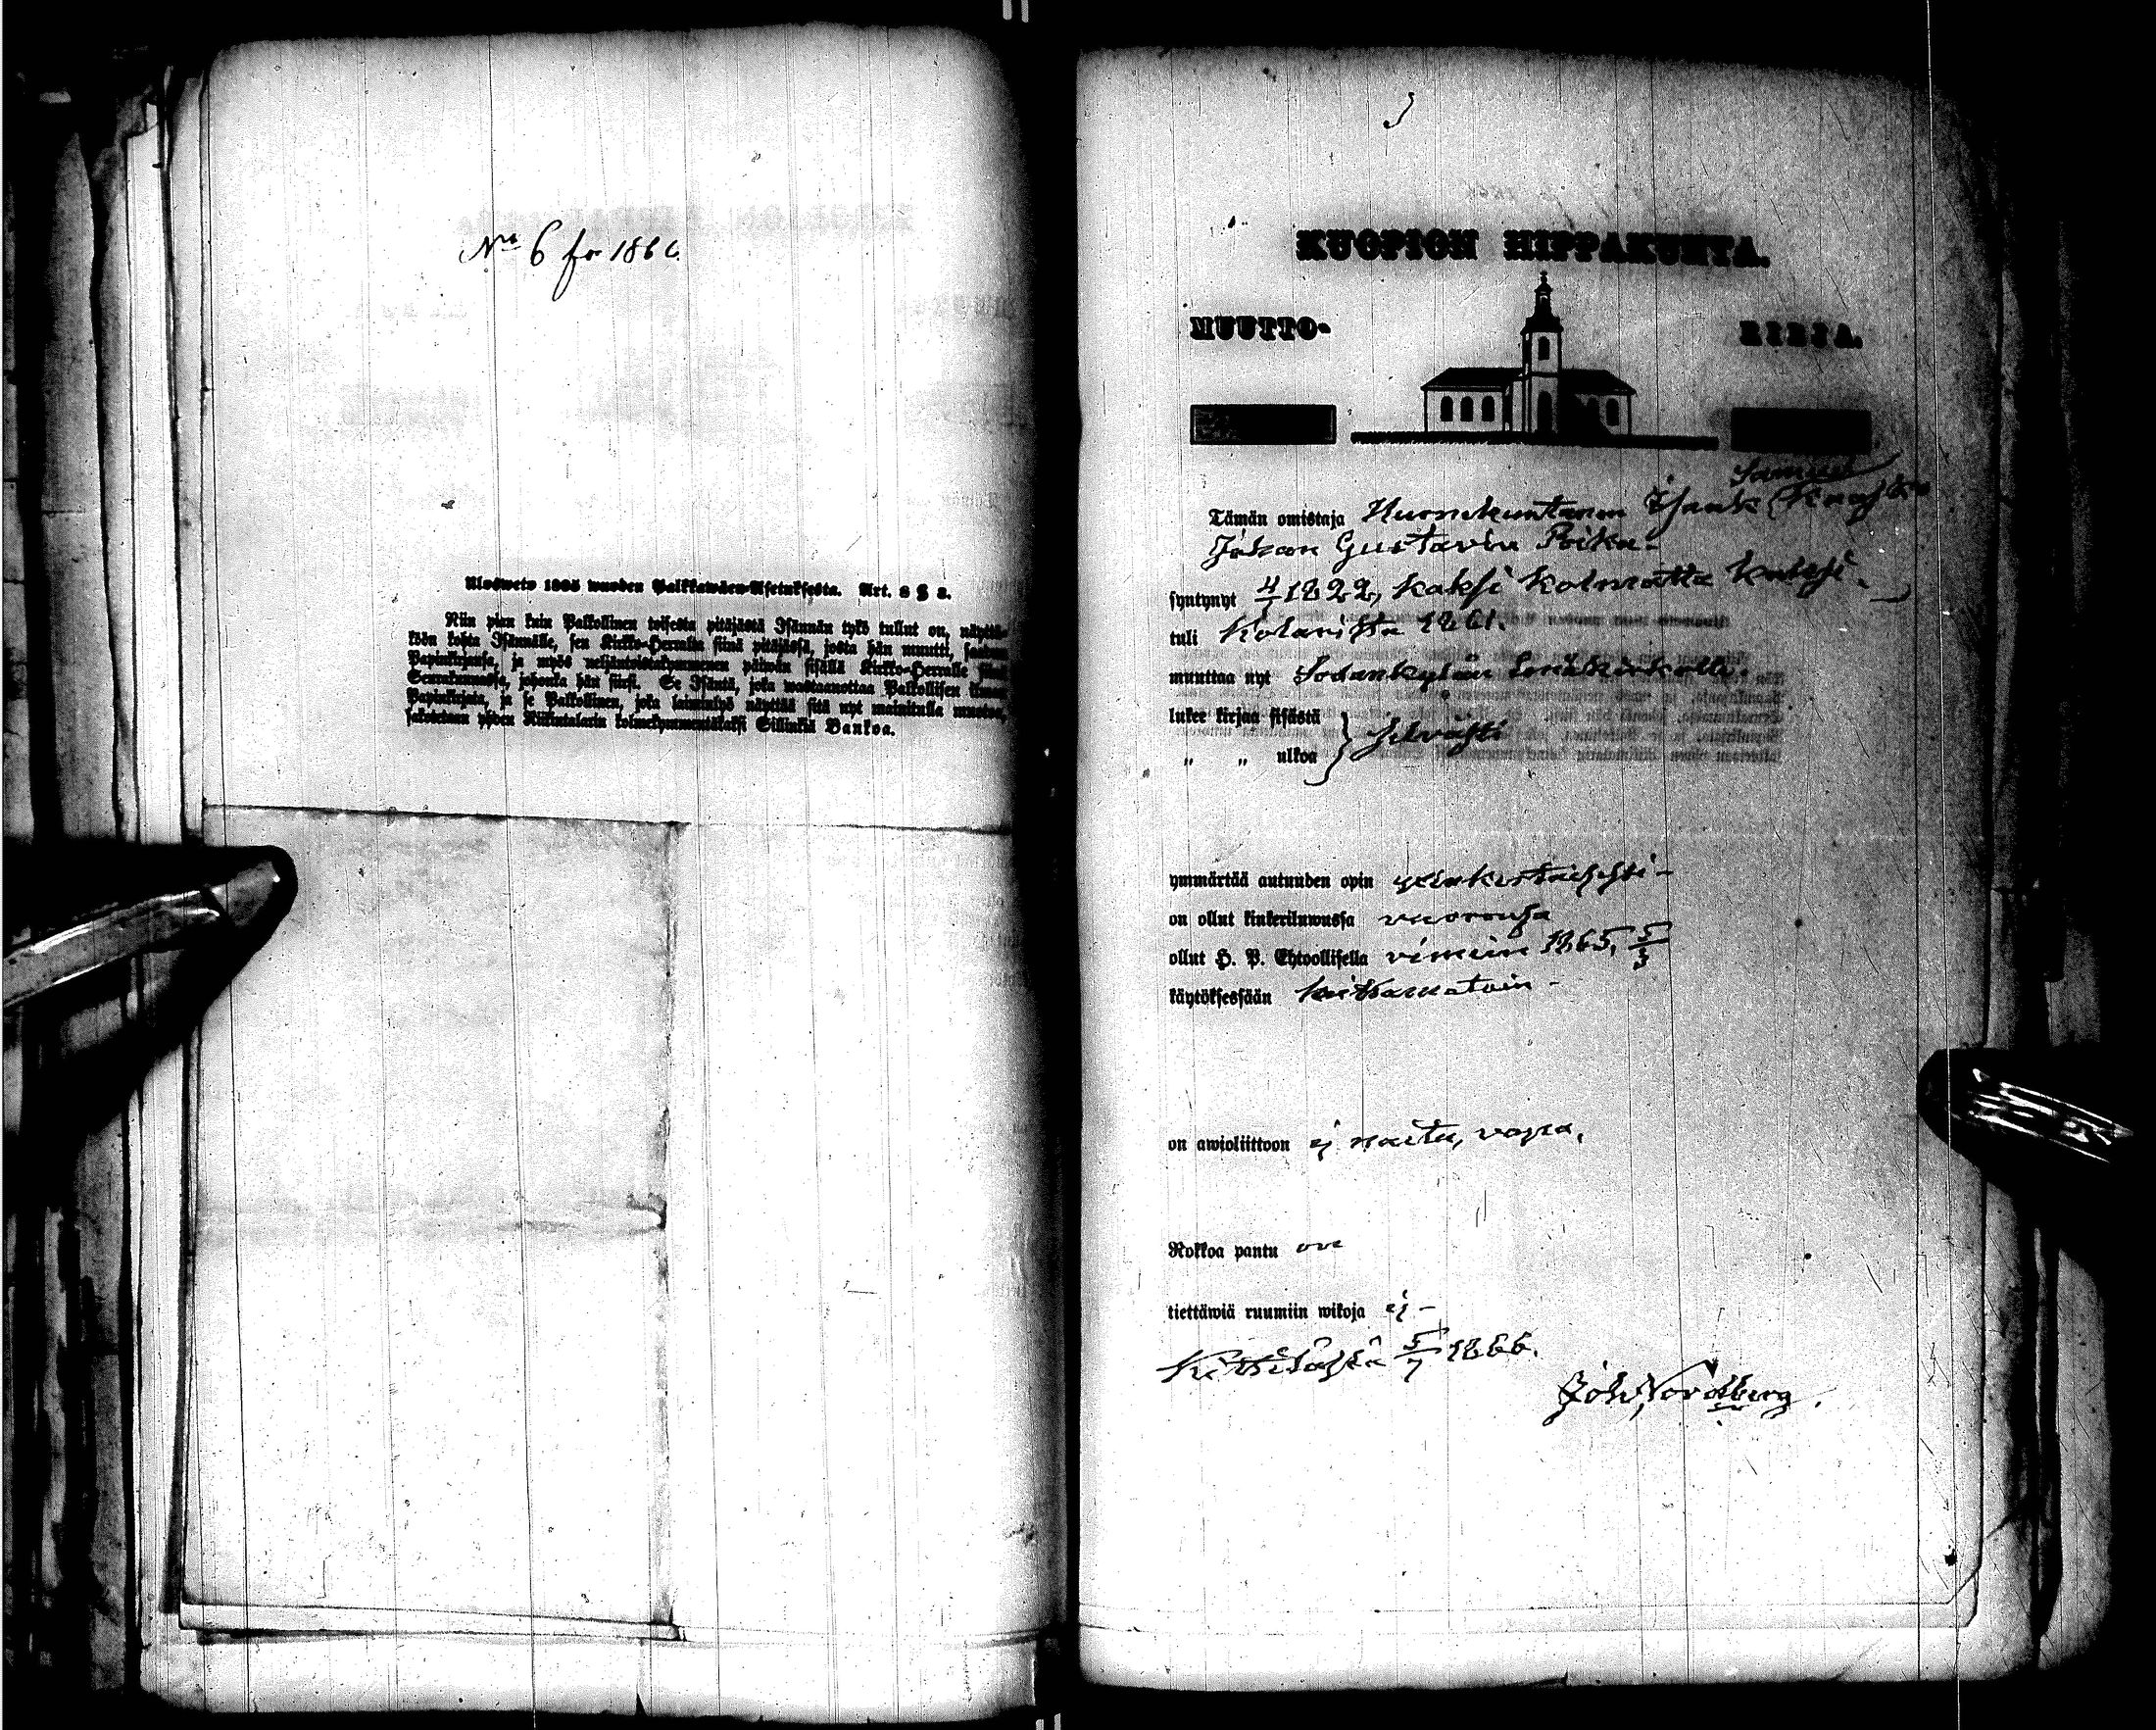 No 6 for 1866.
Ulosweto 1805 wuoden Palkkawäen-Asetuksesta. Art. 8 § 3.
Niin pian kuin Palkollinen toisesta pitäjästä Isännän tykö tullut on, näyttä-
köön kohta Isännälle, sen Kirkko-Herralta siinä pitäjässä, josta hän muutti, saadun
Papinkirjansa, ja myös neljäntoistakymmenen päiwän sisällä Kirkko-Herralle siinä
Seurakunnassa, johonka hän siirsi. Se Isäntä, joka wastaanottaa Palkollisen ilman
Papinkirjata, ja se Palkollinen, joka laiminlyö näyttää sitä nyt mainitulla muotoa,
sakoitetaan yhden Riikintalarin kolmekymmentäkaksi Sillinkiä Bankoa.
KUOPION HIPPAKUNTA.
MUUTTO- KIRJA.
Samuel
Tämän omistaja Huonekuntanen Isaak
Johan Gustavin Poika.
syntynyt 4/1 1822, kaksi kolmatta
tuli Kolarista 1861.
muuttaa nyt Sodankylän
lukee kirjaa sisästä
" " ulkoa } selvästi
ymmärtää autuuden opin yxinkertaisesti -
on ollut kinkeriluwussa vuoronsa
ollut H. P. Ehtoollisella viimein 1865, 5/3
käytöksessään laittamatoin -
on awioliittoon ej naitu, vapaa.
Rokkoa pantu on
tiettäwiä ruumiin wikoja ej -
Kittilästä 5/7 1866.
Joh. Nordberg.